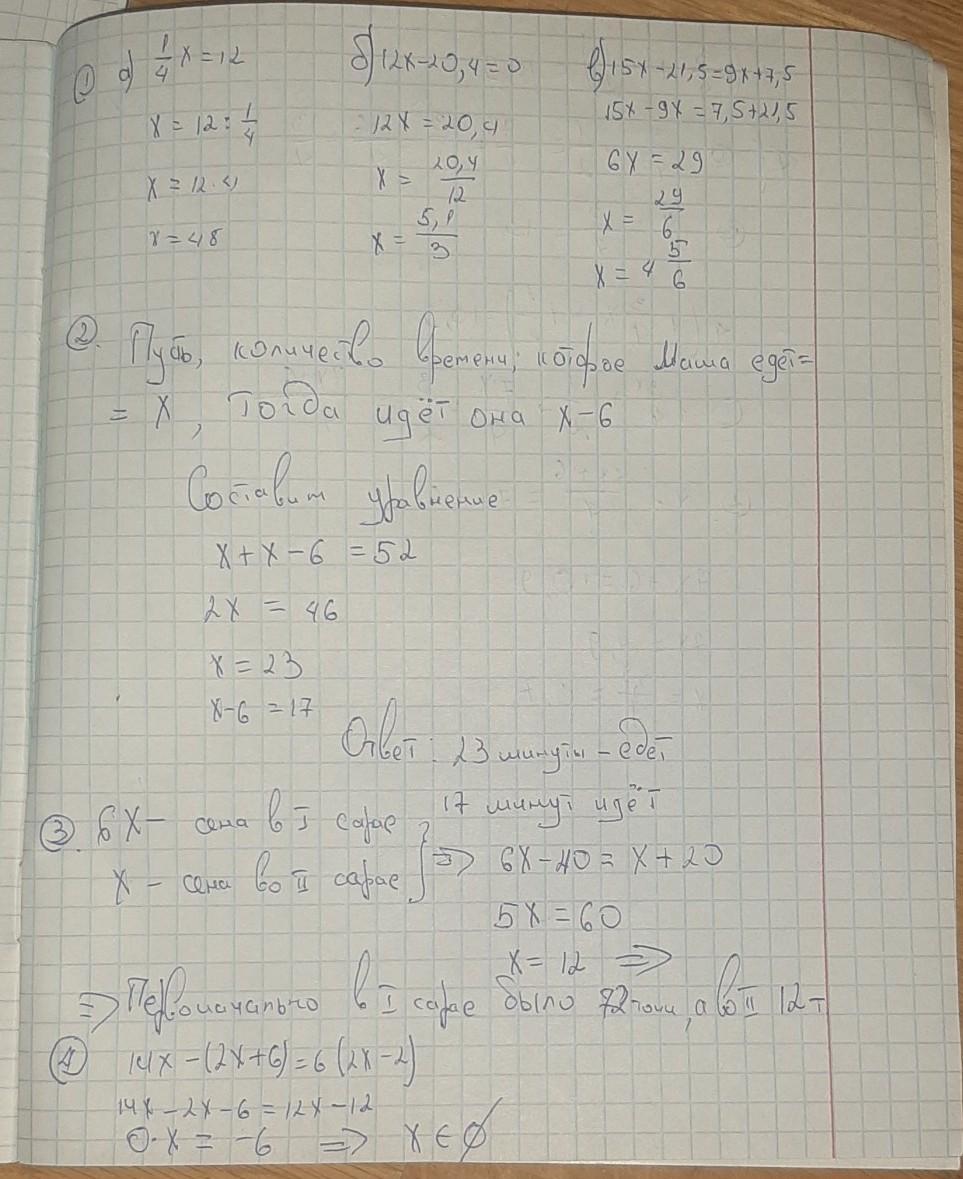 ① а) 1/4 x = 12
x = 12 : 1/4
x = 12 · 4
x = 48
б) 12x - 20,4 = 0
12x = 20,4
x = 20,4/12
x = 5,1/3
в) 15x - 21,5 = 9x + 7,5
15x - 9x = 7,5 + 21,5
6x = 29
x = 29/6
x = 4 5/6
②. Пусть, количество времени, которое Маша едет =
= x, тогда идёт она x - 6
Составим уравнение
x + x - 6 = 52
2x = 46
x = 23
x - 6 = 17
Ответ: 23 минуты - едет
17 минут идёт
③. 6x - сена в I сарае
x - сена во II сарае } => 6x - 40 = x + 20
5x = 60
x = 12 =>
=> Первоначально в I сарае было 72 тонн, а во II 12 т
④ 14x - (2x + 6) = 6(2x - 2)
14x - 2x - 6 = 12x - 12
0 · x = -6 => x ∈ ∅